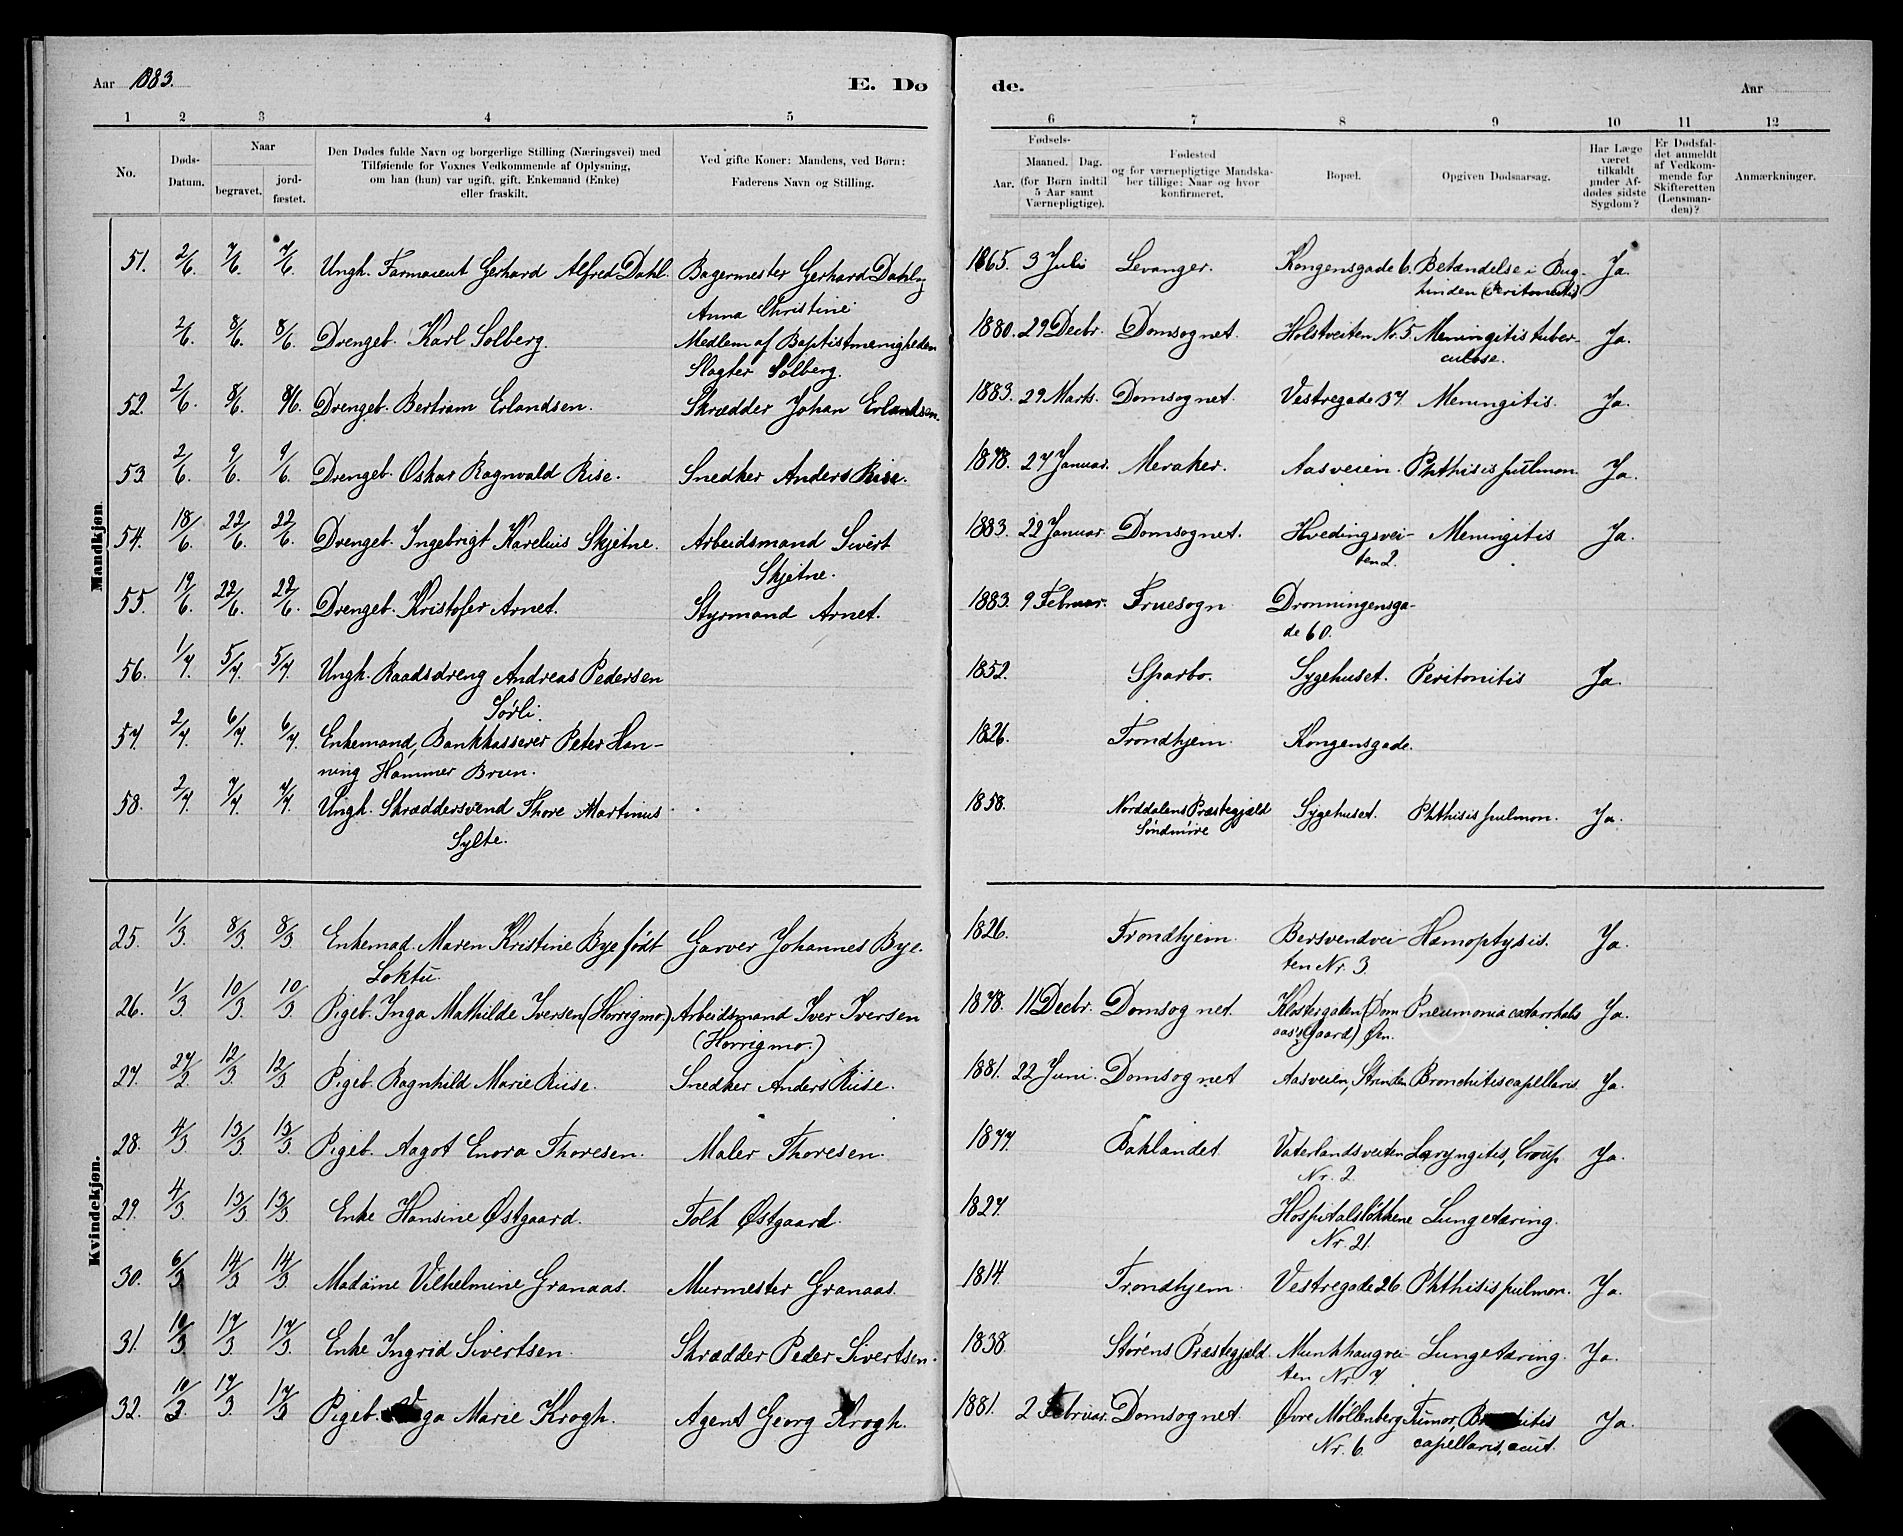 Aar 1883. E. Dø
1 2 3 4 5
No. Døds-Datum. Naar begravet. jordfæstet. Den Dødes fulde Navn og borgerlige Stilling (Næringsvei) med Tilføiende for Voxnes Vedkommende af Oplysning, om han (hun) var ugift, gift, Enkemand (Enke) eller fraskilt. Ved gifte Koner: Mandens, ved Børn: Faderens Navn og Stilling.
Mandkjøn
51. 2/6. 7/6. 7/6. Ungk. Farmaceut Gerhard Alfred Dahl. Bagermester Gerhard Dahl og
Anna Christine
2/6. 8/6. 8/6. Drengeb. Karl Solberg. Medlem af Baptistmenigheden
Slagter Solberg.
52. 2/6. 8/6. 8/6. Drengeb. Bertram Erlandsen. Skrædder Johan Erlandsen.
53. 2/6. 9/6. 9/6. Drengeb. Oskar Ragnvald Rise. Snedker Anders Rise.
54. 18/6. 22/6. 22/6. Drengeb. Ingebrigt Karelius Skjetne. Arbeidsmand Sivert
Skjetne.
55. 19/6. 22/6. 22/6. Drengeb. Kristofer Arnet. Styrmand Arnet.
56. 1/7. 5/7. 5/7. Ungk. Raadsdreng Andreas Pedersen
Sørli.
57. 2/7. 6/7. 6/7. Enkemand, Bankkasserer Peter Han-
ning Hammer Brun.
58. 2/7. 7/7. 7/7. Ungk. Skræddersvend Thore Martinus
Sylte.
Kvindekjøn.
25. 1/3. 8/3. 8/3. Enkemad. Maren Kristine Bye født Garver Johannes Bye.
Loktu.
26. 1/3. 10/3. 10/3. Pigeb. Inga Mathilde Iversen (Horrigmo.) Arbeidsmand Iver Iversen
(Horrigmo.)
27. 27/2. 12/3. 12/3. Pigeb. Ragnhild Marie Riise. Snedker Anders Riise.
28. 4/3. 13/3. 13/3. Pigeb. Aagot Enora Thoresen. Maler Thoresen.
29. 4/3. 13/3. 13/3. Enke Hansine Østgaard. Tolk Østgaard.
30. 6/3 14/3. 14/3. Madame Vilhelmine Granaas. Murmester Granaas.
31. 10/3. 17/3. 17/3. Enke Ingrid Sivertsen. Skrædder Peder Sivertsen.
32. 10/3. 17/3. 17/3. Pigeb. Marie Krogh. Agent Georg Krogh.
de. Aar
6 7 8 9 10 11 12
Fødsels- Aar. Maaned. Dag. (for Børn indtil 5 Aar samt Værnepligtige). Fødested og for værnepligtige Mandskaber tillige: Naar og hvor konfirmeret. Bopæl. Opgiven Dødsaarsag. Har Læge været tilkaldt under Afdødes sidste Sygdom? Er Dødsfaldet anmeldt af Vedkommende for Skifteretten (Lensmanden)? Anmærkninger.
1865. 3 Juli Levanger. Kongensgade 6. Betændelse i Bug-
hinden (Peritonitis) Ja.
1880. 29 Decbr. Domsognet. Holstveiten N. 5. Meningitis tuber-
culose. Ja.
1883. 29 Marts. Domsognet. Vestregade 37. Meningitis. Ja.
1878. 27 Januar. Meraker. Aasveien. Phthisis pulmon. Ja.
1883. 22 Januar. Domsognet. Hvedingsvei-
ten 2. Meningitis Ja.
1883. 9 Februar. Fruesogn Dronningensga-
de 60.
1852. Sparbo. Sygehuset. Peritonitis Ja.
1826. Trondhjem. Kongensgade.
1858. Norddalens Præstegjæld
Søndmøre Sygehuset. Phthisis pulmon. Ja.
1826. Trondhjem. Bersvendvei-
ten Nr. 3. Hæmoptysis. Ja.
1878. 11 Decbr. Domsognet. Klostergaden (Dom
aas's Gaard) Øen. Pneumonia catarrhalis Ja.
1881. 22 Juni. Domsognet Aasveien, Strinden Bronchitis capellaris. Ja.
1877. Baklandet. Vaterlandsveiten
Nr. 2. Laryngitis, Croup Ja.
1827. Hospitalsløkkene
Nr. 21. Lungetæring.
1814. Trondhjem. Vestregade 26. Phthisis pulmon. Ja.
1838. Størens Præstegjæld. Munkhaugvei-
ten Nr. 7 Lungetæring. Ja.
1881. 2 Februar. Domsognet. Øvre Møllenberg
Nr. 6. Tumor, Bronchitis
capellaris, acut. Ja.